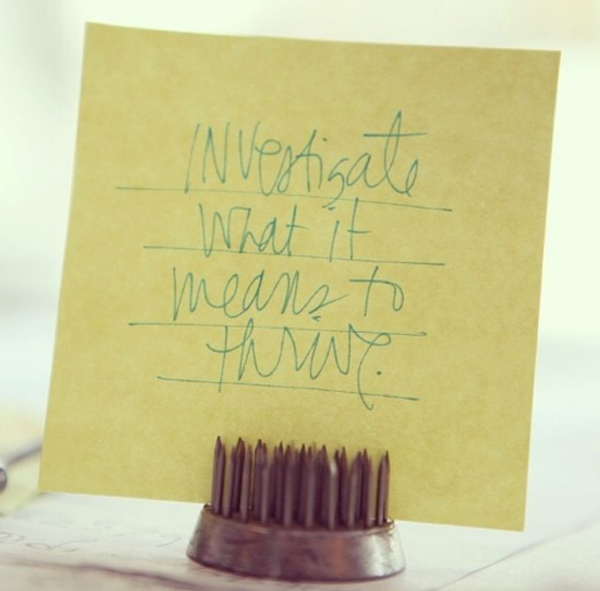 INVestigate
What it
means to
thrive.